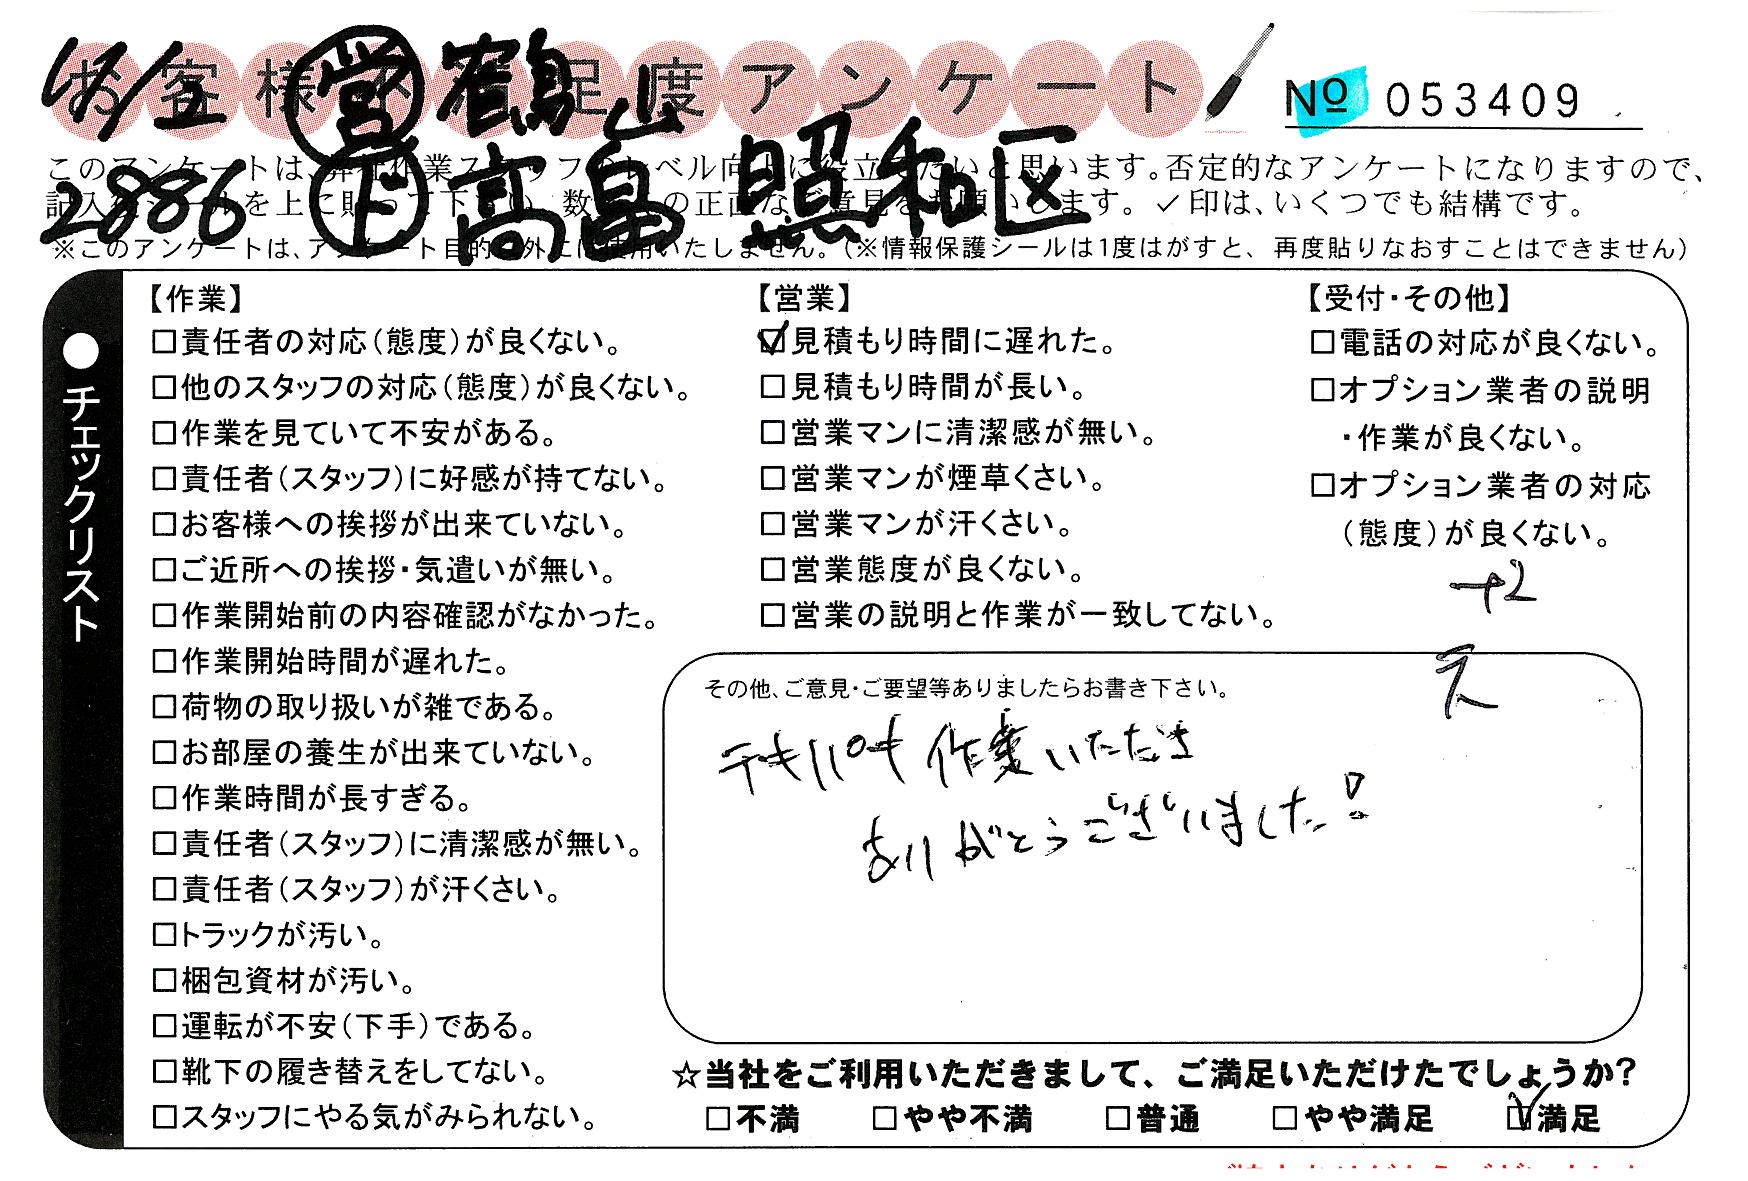 お客様不満足度アンケート
No 053409
営 鶴山
2886 下 高畠 照和区
このアンケートは、弊社作業スタッフのレベル向上に役立てたいと思います。否定的なアンケートになりますので、
記入後シールを上に貼って下さい。数多くの正直なご意見をお願いします。✓印は、いくつでも結構です。
※このアンケートは、アンケート目的以外には使用いたしません。(※情報保護シールは1度はがすと、再度貼りなおすことはできません)
●チェックリスト
【作業】
□責任者の対応(態度)が良くない。
□他のスタッフの対応(態度)が良くない。
□作業を見ていて不安がある。
□責任者(スタッフ)に好感が持てない。
□お客様への挨拶が出来ていない。
□ご近所への挨拶・気遣いが無い。
□作業開始前の内容確認がなかった。
□作業開始時間が遅れた。
□荷物の取り扱いが雑である。
□お部屋の養生が出来ていない。
□作業時間が長すぎる。
□責任者(スタッフ)に清潔感が無い。
□責任者(スタッフ)が汗くさい。
□トラックが汚い。
□梱包資材が汚い。
□運転が不安(下手)である。
□靴下の履き替えをしてない。
□スタッフにやる気がみられない。
【営業】
☑見積もり時間に遅れた。
□見積もり時間が長い。
□営業マンに清潔感が無い。
□営業マンが煙草くさい。
□営業マンが汗くさい。
□営業態度が良くない。
□営業の説明と作業が一致してない。
【受付・その他】
□電話の対応が良くない。
□オプション業者の説明
・作業が良くない。
□オプション業者の対応
(態度)が良くない。
その他、ご意見・ご要望等ありましたらお書き下さい。
テキパキ作業いただき
ありがとうございました!
☆当社をご利用いただきまして、ご満足いただけたでしょうか?
□不満 □やや不満 □普通 □やや満足 ☑満足